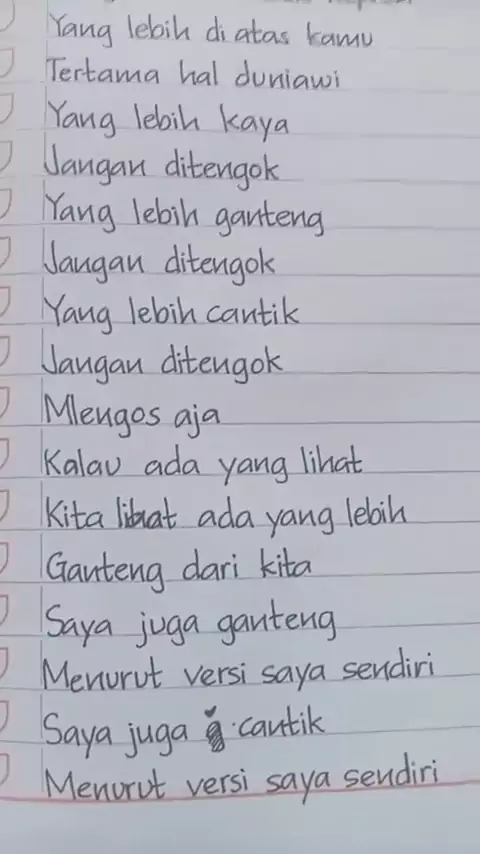 Yang lebih di atas kamu
Tertama hal duniawi
Yang lebih kaya
Jangan ditengok
Yang lebih ganteng
Jangan ditengok
Yang lebih cantik
Jangan ditengok
Mlengos aja
Kalau ada yang lihat
Kita lihat ada yang lebih
Ganteng dari kita
Saya juga ganteng
Menurut versi saya sendiri
Saya juga cantik
Menurut versi saya sendiri